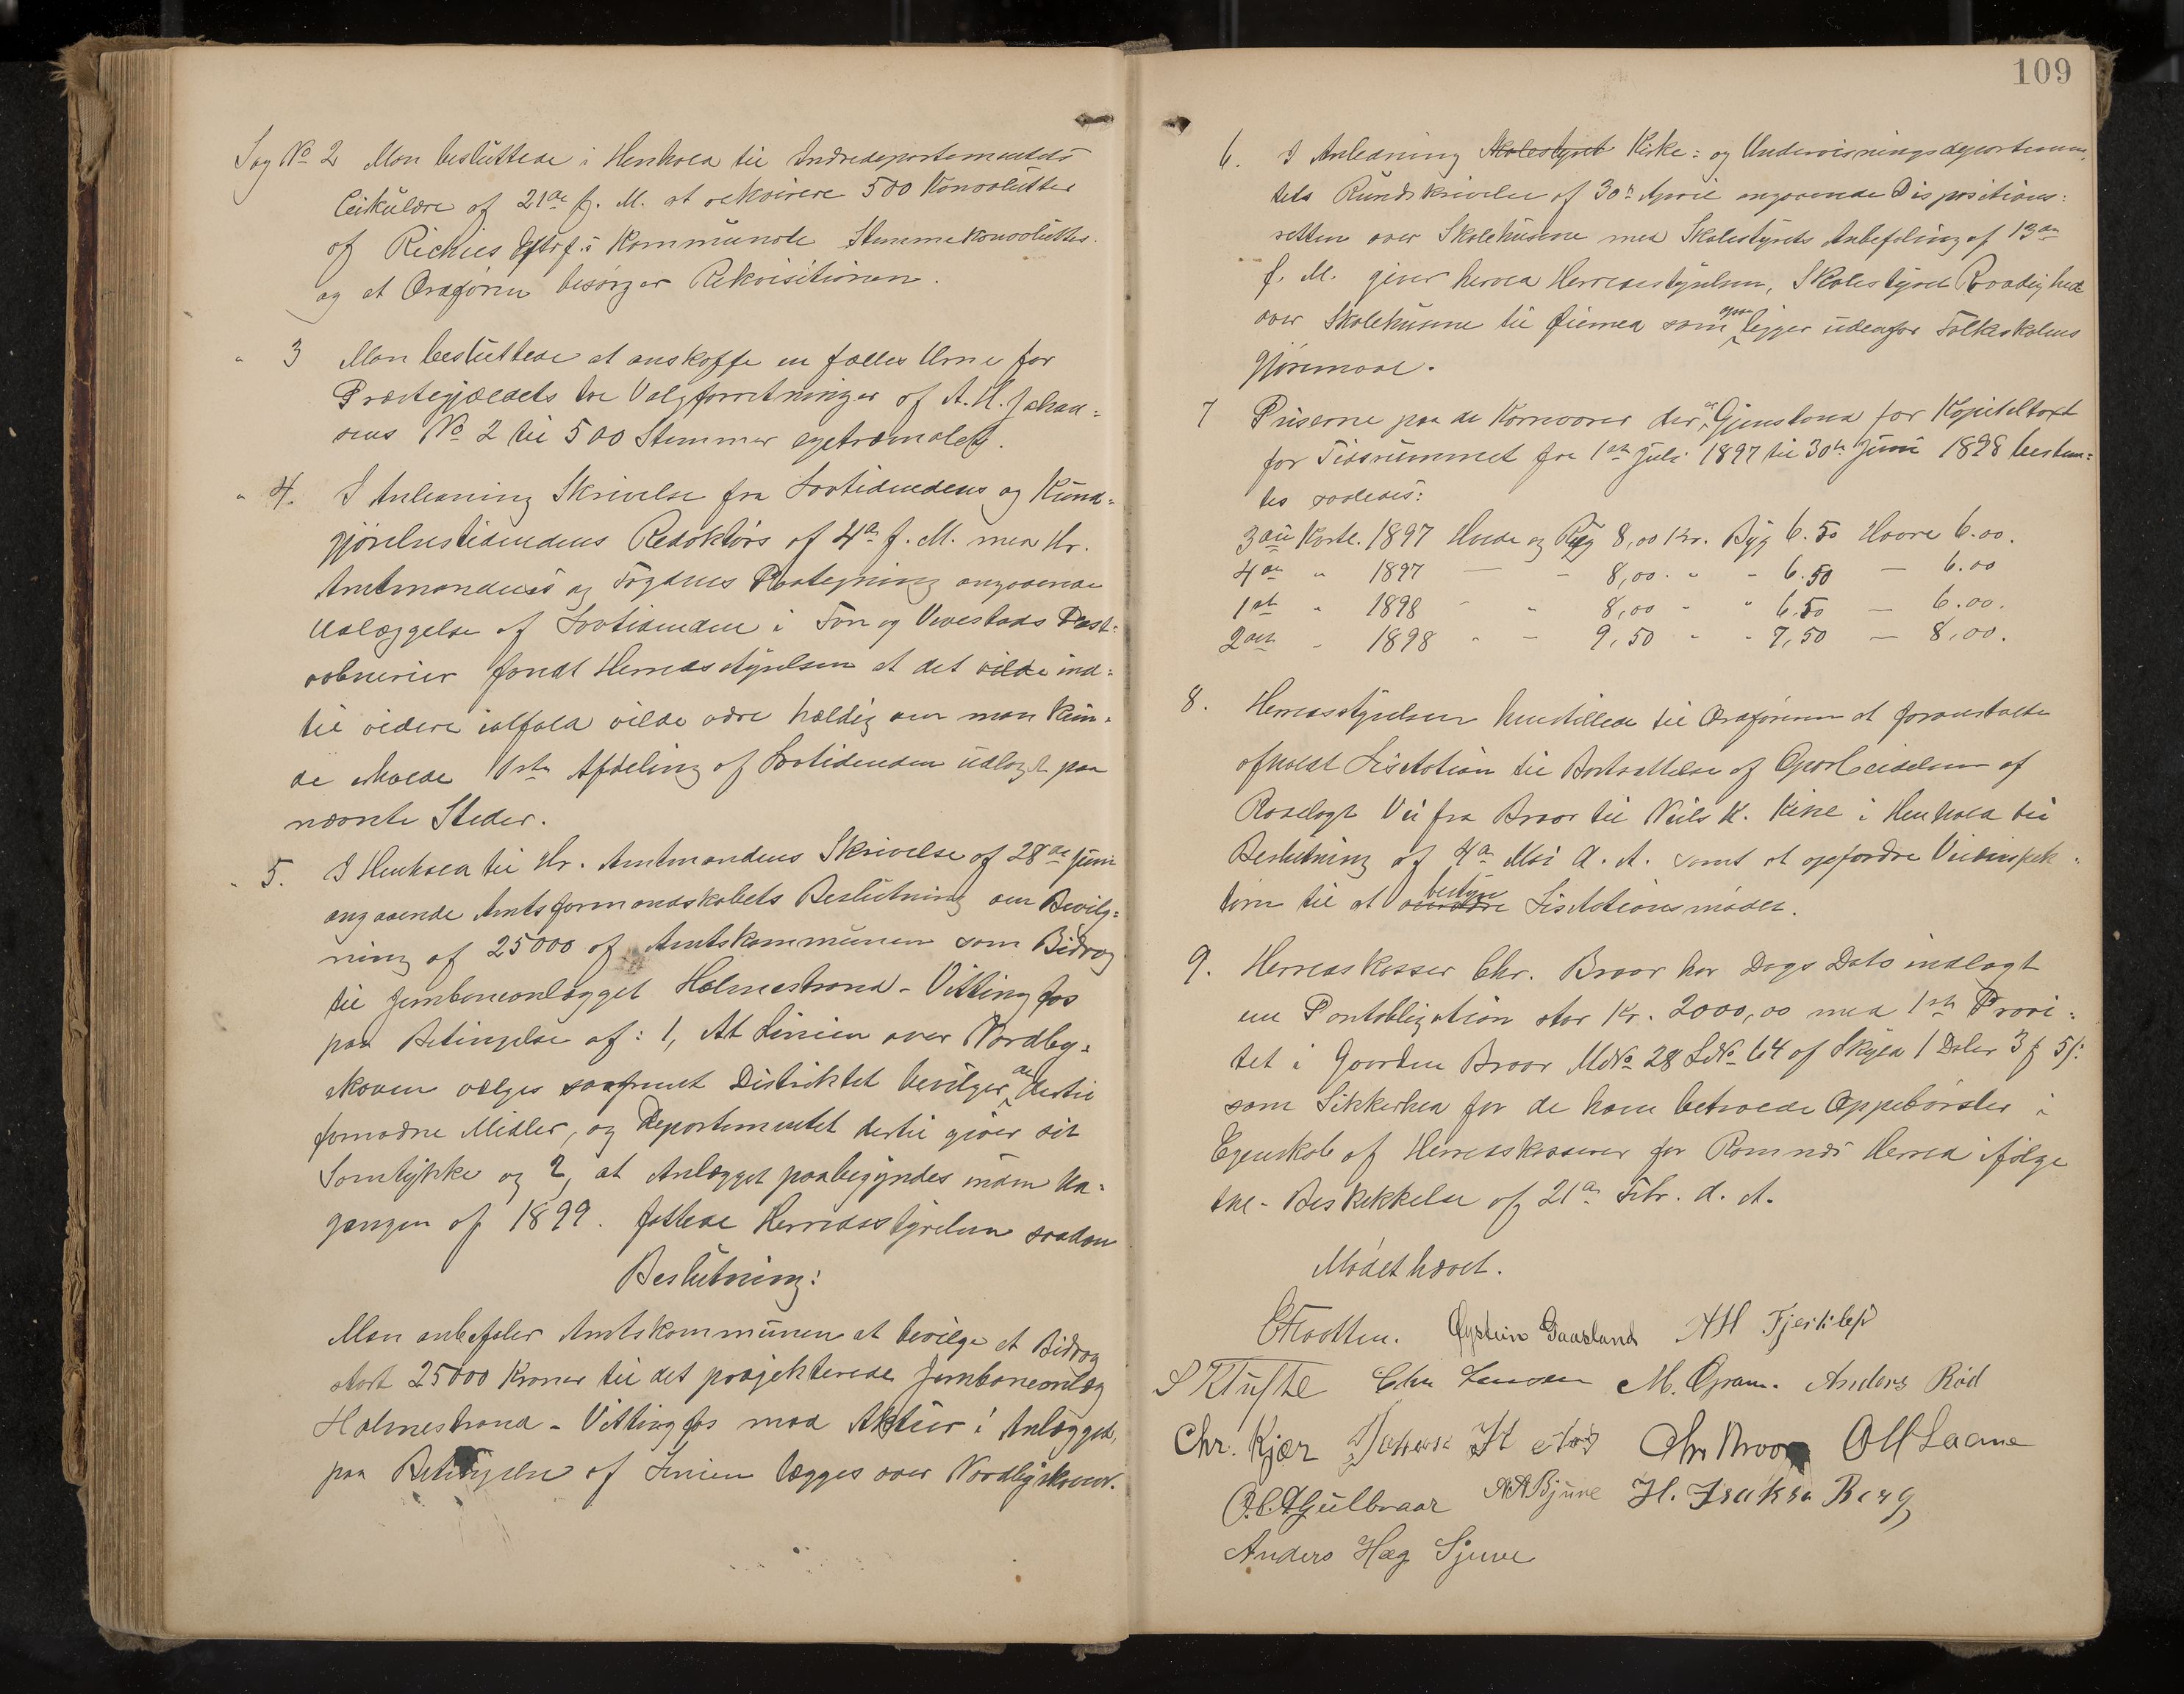 Sag No 2 Man besluttede i Henhold til Indredepartementets
Cirkulære af 21de f. M. at rekvirere 500 Konvolutter
af Richies Eftrf.s Kommunale Stemmekonvolutter.
og at Ordføren besørger Rekvisitionen.
" 3 Man besluttede at anskaffe en fælles Urne for
Præstegjældets tre Valgforretninger af A. H. Johan=
sens No 2 til 500 Stemmer egetræmalet.
" 4. I Anledning Skrivelse fra Lovtidendens og Kund=
gjørelsestidendens Redaktørs af 4de f. M. med Hr.
Amtmandens og Fogdens Paategning angaaende
Udlæggelse af Lovtidenden i Fon og Vivestads Post=
aabnerier fandt Herredsstyrelsen at det vilde ind=
til videre ialfald vilde være heldig om man kun=
de erholde 1ste Afdeling af Lovtidenden udlagt paa
nævnte Steder.
" 5. I Henhold til Hr. Amtmandens Skrivelse af 28de Juni
angaaende Amtsformandskabets Beslutning om Bevilg=
ning af 25000 af Amtskommunen som Bidrag
til Jernbaneanlægget Holmestrand - Vittingfos
paa Betingelse af: 1, At Linien over Nordby=
skoven vælges saafremt Distriktet bevilger de dertil
fornødne Midler, og Departementet dertil giver sit
Samtykke og 2, at Anlægget paabegyndes inden Ud=
gangen af 1899. fattede Herredsstyrelsen saadan
Beslutning:
Man anbefaler Amtskommunen at bevilge et Bidrag
stort 25000 Kroner til det projekterede Jernbaneanlæg
Holmestrand - Vittingfos mod Aktier i Anlægget,
paa Betingelse af Linien lægges over Nordbyskoven.
109
6. I Anledning Skolestyret Kirke= og Undervisningsdepartemen=
tets Rundskrivelse af 30te April angaaende Dispositions=
retten over Skolehusene med Skolestyrets Anbefaling af 13de
f. M. giver herved Herredsstyrelsen, Skolestyret Raadighed
over Skolehusene til Øiemed som ligger udenfor Folkeskolens
Gjøremaal.
7 Priserne paa de Kornvarer der er Gjenstand for Kapiteltaxt
for Tidsrummet fra 1ste Juli 1897 til 30te Juni 1898 bestem=
tes saaledes:
3die Kvrtl. 1897 Hvede og Rug 8,00 Kr. Byg 6.50 Havre 6.00.
4de " 1897 — - 8,00. " - 6.50 — 6.00
1ste " 1898 - " 8,00 - " 6.50 — 6.00.
2det " 1898 " - 9,50 - - 7,50 — 8,00.
8. Herredsstyrelsen henstillede til Ordføreren at foranstalte
afholdt Lisitation til Bortsættelse af Oparbeidelsen af
Rodelagt Vei fra Braar til Niels K. Kihl i Henhold til
Beslutning af 4de Mai d. A. samt at opfordre Veiinspek=
tøren til at bestyre Lisitationsmødet.
9. Herredskasser Chr. Braar har Dags Dato indlagt
en Pantobligation stor Kr. 2000,00 med 1ste Priori=
tet i Gaarden Braar MNo 28 LNo 64 af Skyld 1 Daler 3 f 5 /:
som Sikkerhed for de ham betroede Oppebørsler i
Egenskab af Herredskasserer for Ramnæs Herred ifølge
the - Beskikkelse af 21de Febr. d. A.
Mødet hævet.
Øystein Gaasland AH Fjertilep
S K Tufte Chr Larssen M. Gran. Anders Rød
Chr. Kjær Chr Braar Ol Laane
O. C. Gulbraar A A Bjune H. Isaksen Berg
Anders Hæg Sjuve